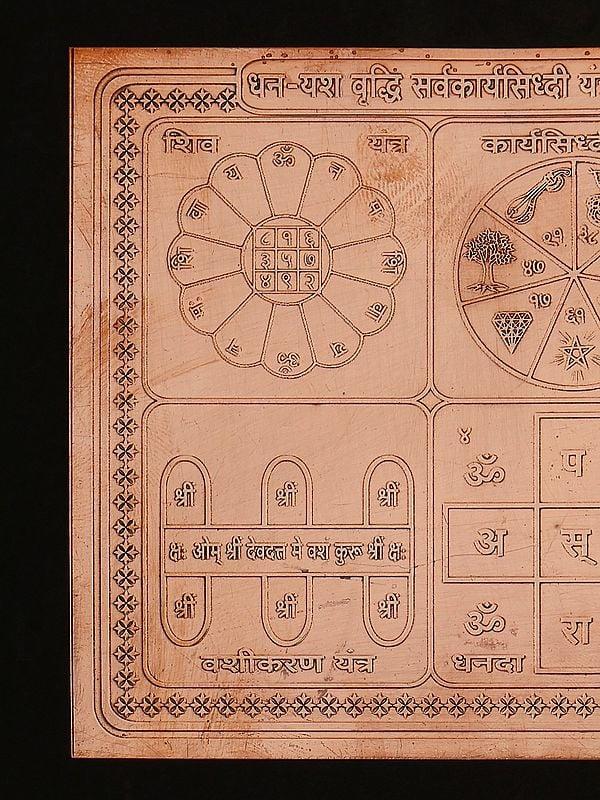 धन-यश वृद्धि सर्वकार्यसिध्दी यं
शिव यत्र
ॐ न मः शि वा य ॐ न मः शि वा य
८ १ ६
३ ५ ७
४ ९ २
कार्यसिध्द
२१ ३८
४७
१७ ६१
श्रीं श्रीं श्रीं
क्षः ओम् श्रीं देवदत्त मे वश कुरू श्रीं क्षः
श्रीं श्रीं श्रीं
वशीकरण यंत्र
४
ॐ प
अ स्
ॐ रा
धनदा